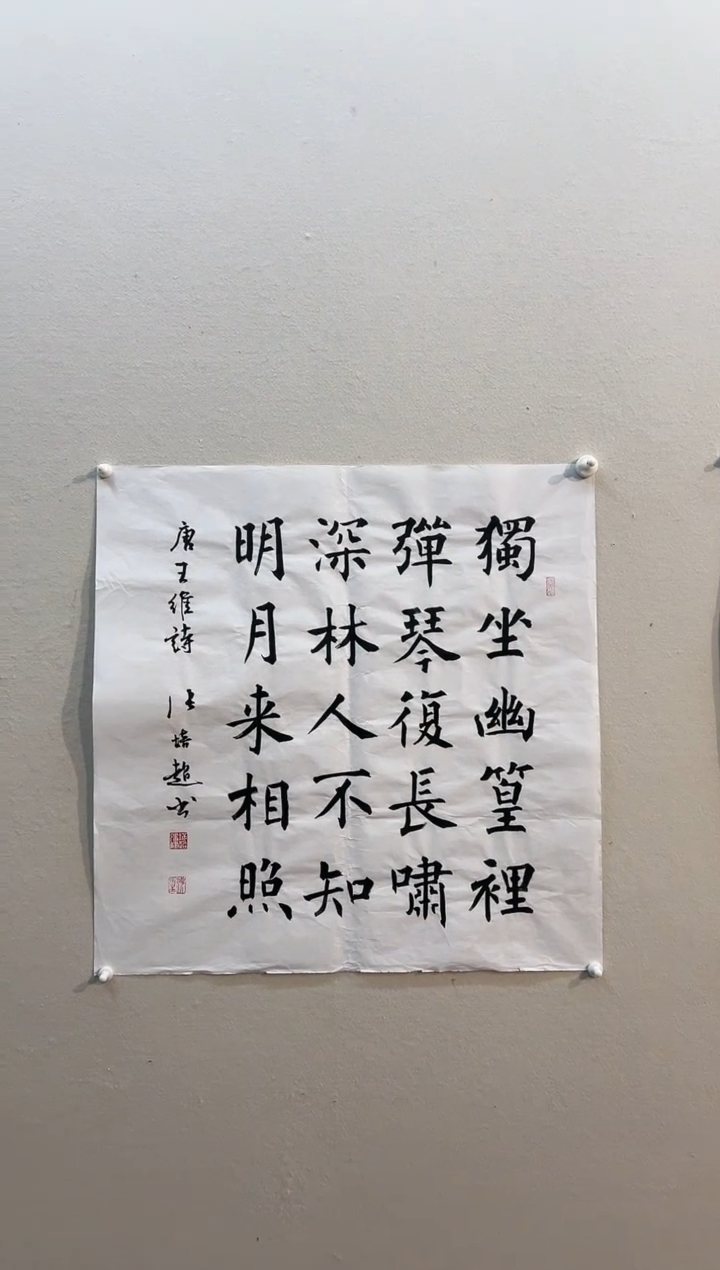 獨坐幽篁裡
彈琴復長嘯
深林人不知
明月来相照
唐王維詩 张培趙书